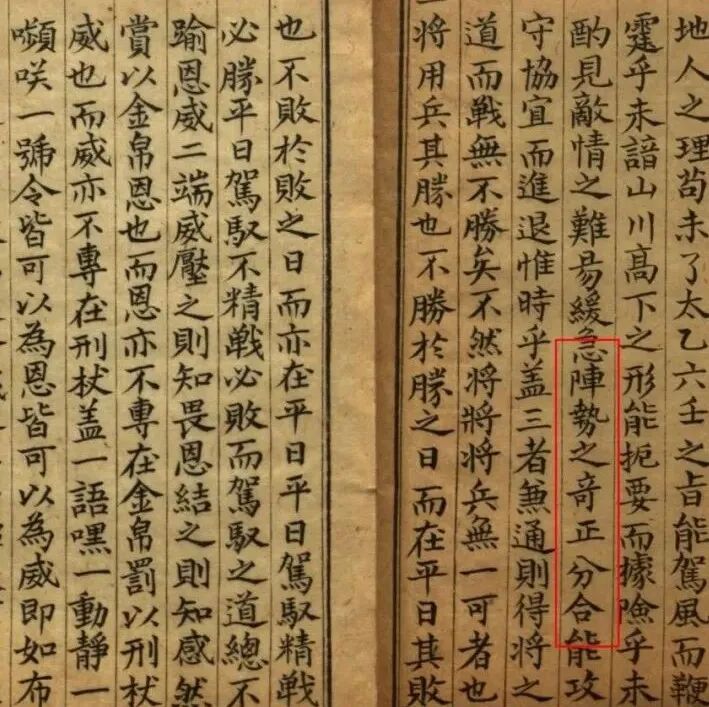 地人之理苟未了太乙六壬之旨能駕風而鞭
霆乎未諳山川高下之形能扼要而據險乎未
酌見敵情之難易緩急陣勢之奇正分合能攻
守協宜而進退惟時乎盖三者兼通則得將之
道而戰無不勝矣不然將將將兵無一可者也
將用兵其勝也不勝於勝之日而在平日其敗
也不敗於敗之日而亦在平日平日駕馭精戰
必勝平日駕馭不精戰必敗而駕馭之道總不
踰恩威二端威壓之則知畏恩結之則知感然
賞以金帛恩也而恩亦不專在金帛罰以刑杖
威也而威亦不專在刑杖盖一語嘿一動靜一
嚬咲一號令皆可以為恩皆可以為威即如布